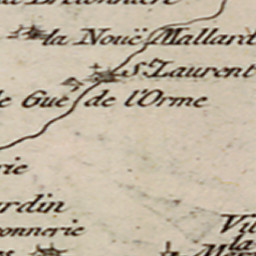 la Nouë Mallard
S. Laurent
le Gué de l'Orme
rie
rdin
onnerie
Vil
la